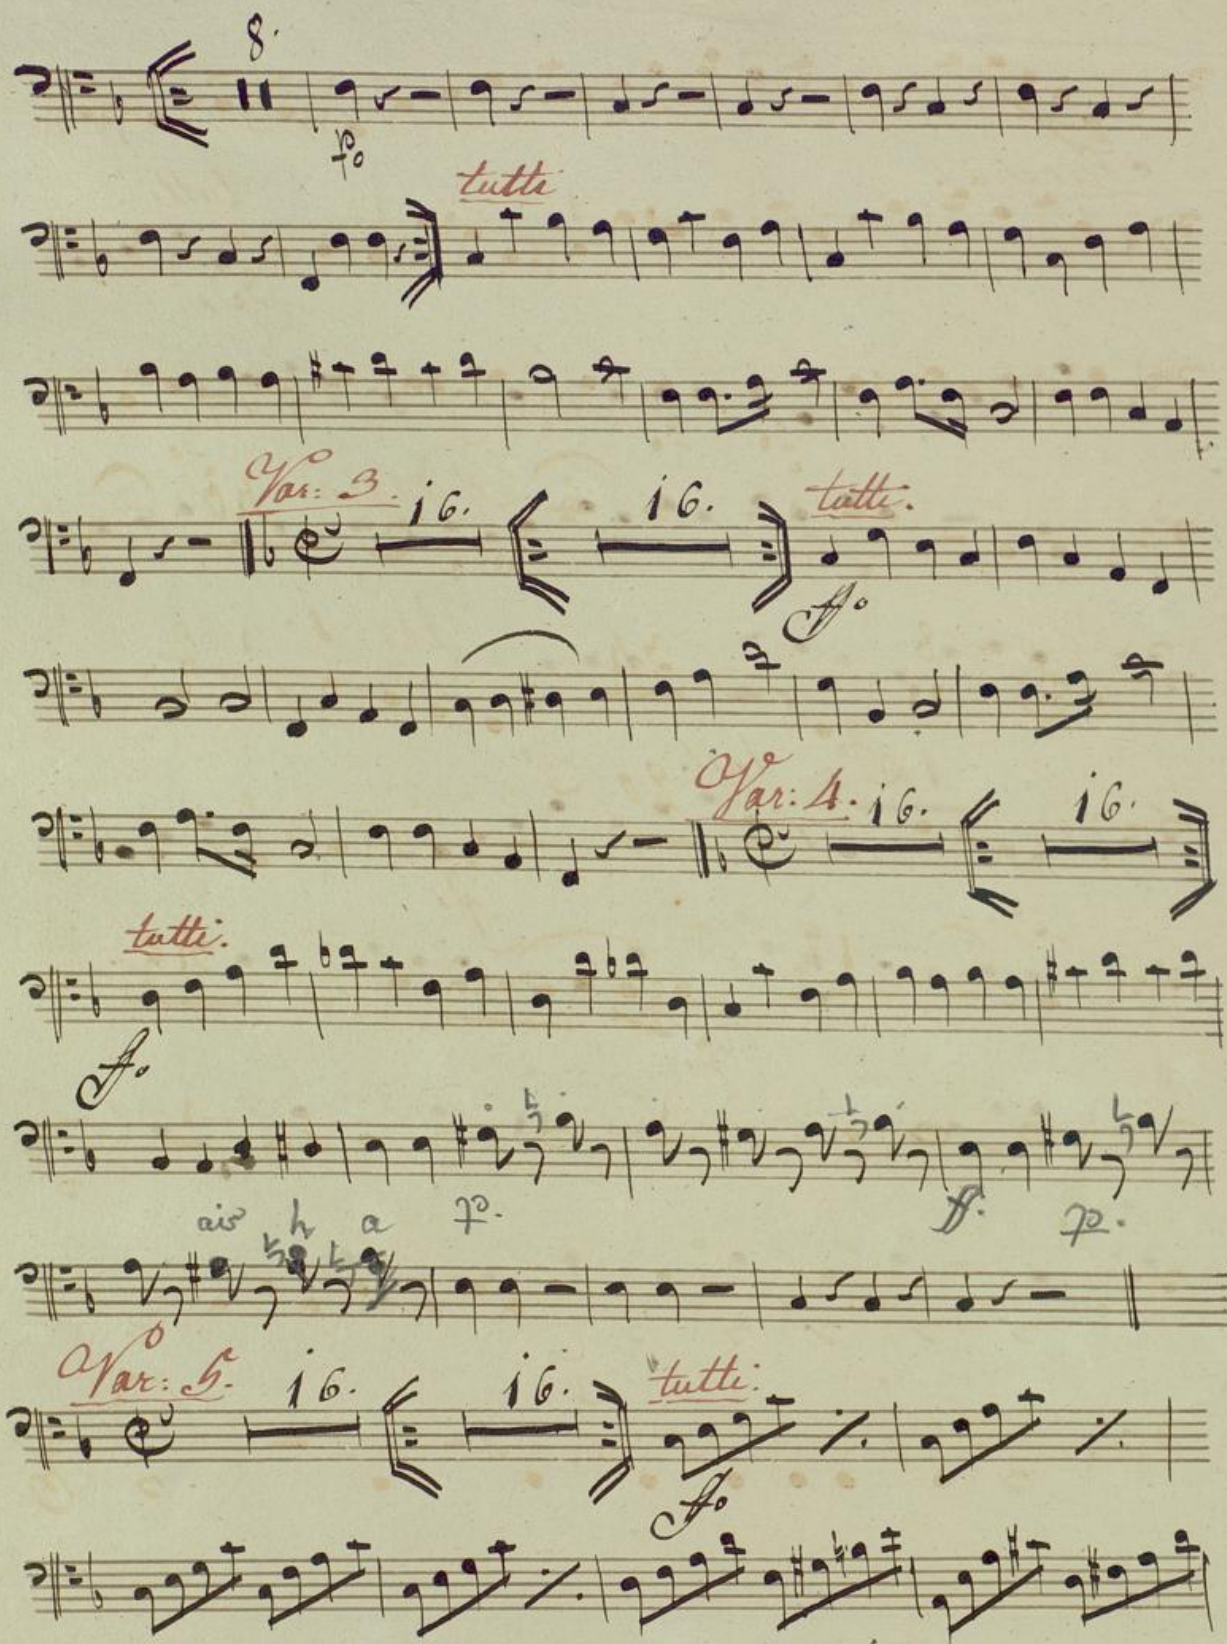 8.
po
tutti
Var: 3. 16. 16. tutti.
ffo
Var: 4. 16. 16.
tutti.
fo
ais h a p. ff. p.
Var: 5. 16. 16. tutti.
fo